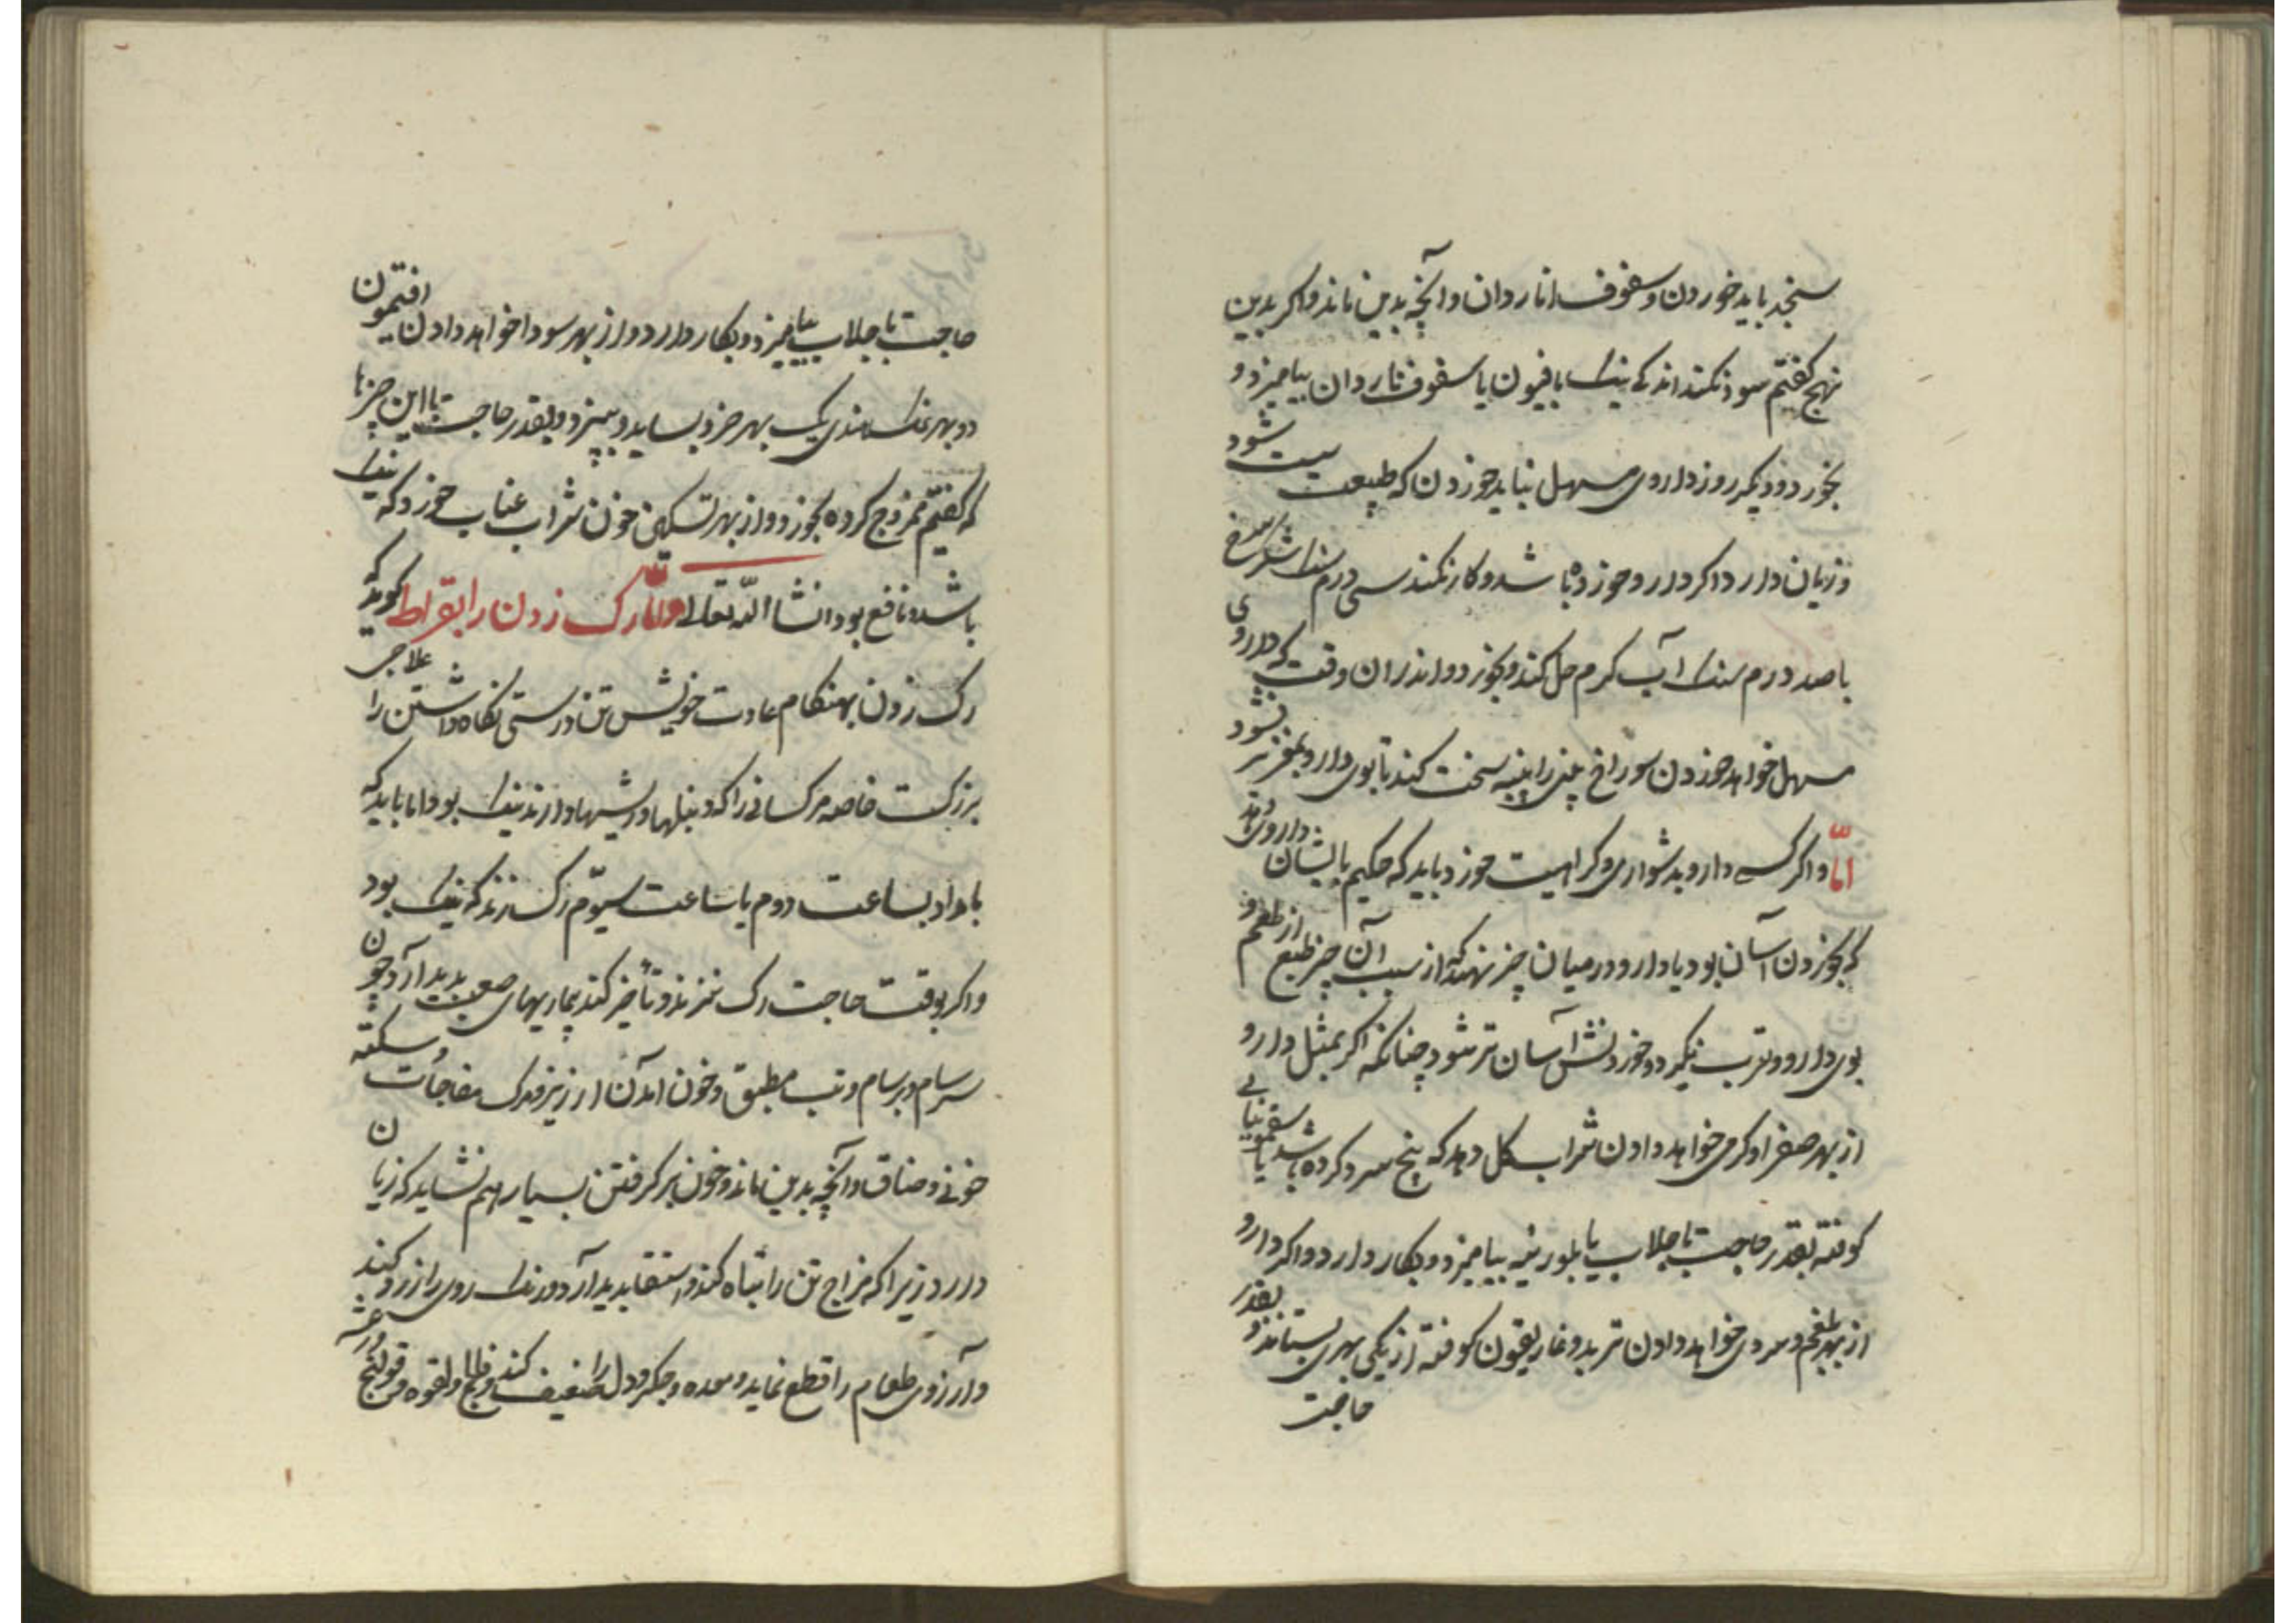 سنجد باید خوردن و سفوف انار دان و آنچه بدین ماند و اکر بدین
نهج کفتیم سود نکند اندکی نیک بافیون با سفوف ناردان بیامیزد و
بخورد و دیکر روز داروی مسهل نباید خوردن که طبیعت سست شود
و زیان دارد و اکر دارو خورده باشد و کار نکند سی درم سنک شکر سرخ
با صد درم سنک آب کرم حل کند و بخورد و اندران وقت که داروی
مسهل خواهد خوردن سوراخ بینی را پنبه سخت کند تا بوی دارو بمغز بر نشود
امّا و اکر کسی دارو بدشواری و کراهیت خورد باید که حکیم بایشان داروئی دهد
که بخوردن آسان بود یا دارو در میان چیز نهد که از سبب آن چیز طبع از طعم و
بوی دارو و نفرت نکیرد و خوردنش آسان تر شود چنانکه اکر بمثل دارو
از بهر صفرا و کرمی خواهد دادن شراب کل دهد که بیخ سرد کرده باشد یا سقمونیائی
کوفته بقدر حاجت با جلاب یا بلوزینه بیامیزد و بکار دارد و اکر دارو
از بهر بلغم و سردی خواهد دادن تربد و غاریقون کوفته از یکی بهری بستاند و بقدر
حاجت
حاجت با جلاب بیامیزد و بکار دارد و از بهر سودا خواهد دادن افتیمون
دو بهر نمک هندی یک بهر خرد بساید و بپزد و بقدر حاجت با این چیزها
که کفتیم ممزوج کرده بخورد و از بهر تسکین خون شراب عناب خورد که نیک
باشد و نافع بود انشا الله تعالی رک زدن را بقراط کوید که
رک زدن بهنکام عادت خویش تن درستی نکاه داشتن را علاجی
بزرکست خاصه مر کسانی را که دنبلها و ریشها دارند نیک بود اما باید که
بامداد بساعت دوم یا ساعت سیوّم رک زند که نیک بود
و اکر بوقت حاجت رک نزند و تأخیر کند بیماریهای صعب پدید آرد چون
سرسام و برسام و تب مطبق و خون آمدن از زیر و مرک مفاجات و سکته
خونی و خناق و آنچه بدین ماند و خون بر کرفتن بسیار هم نشاید که زیان
دارد زیرا که مزاج تن را تباه کند و استسقا پدید آرد و رنک روی را زرد کند
و آرزوی طعام را قطع نماید و معده و جکر و دل را ضعیف کند و فالج و لقوه و قولنج و رعشه